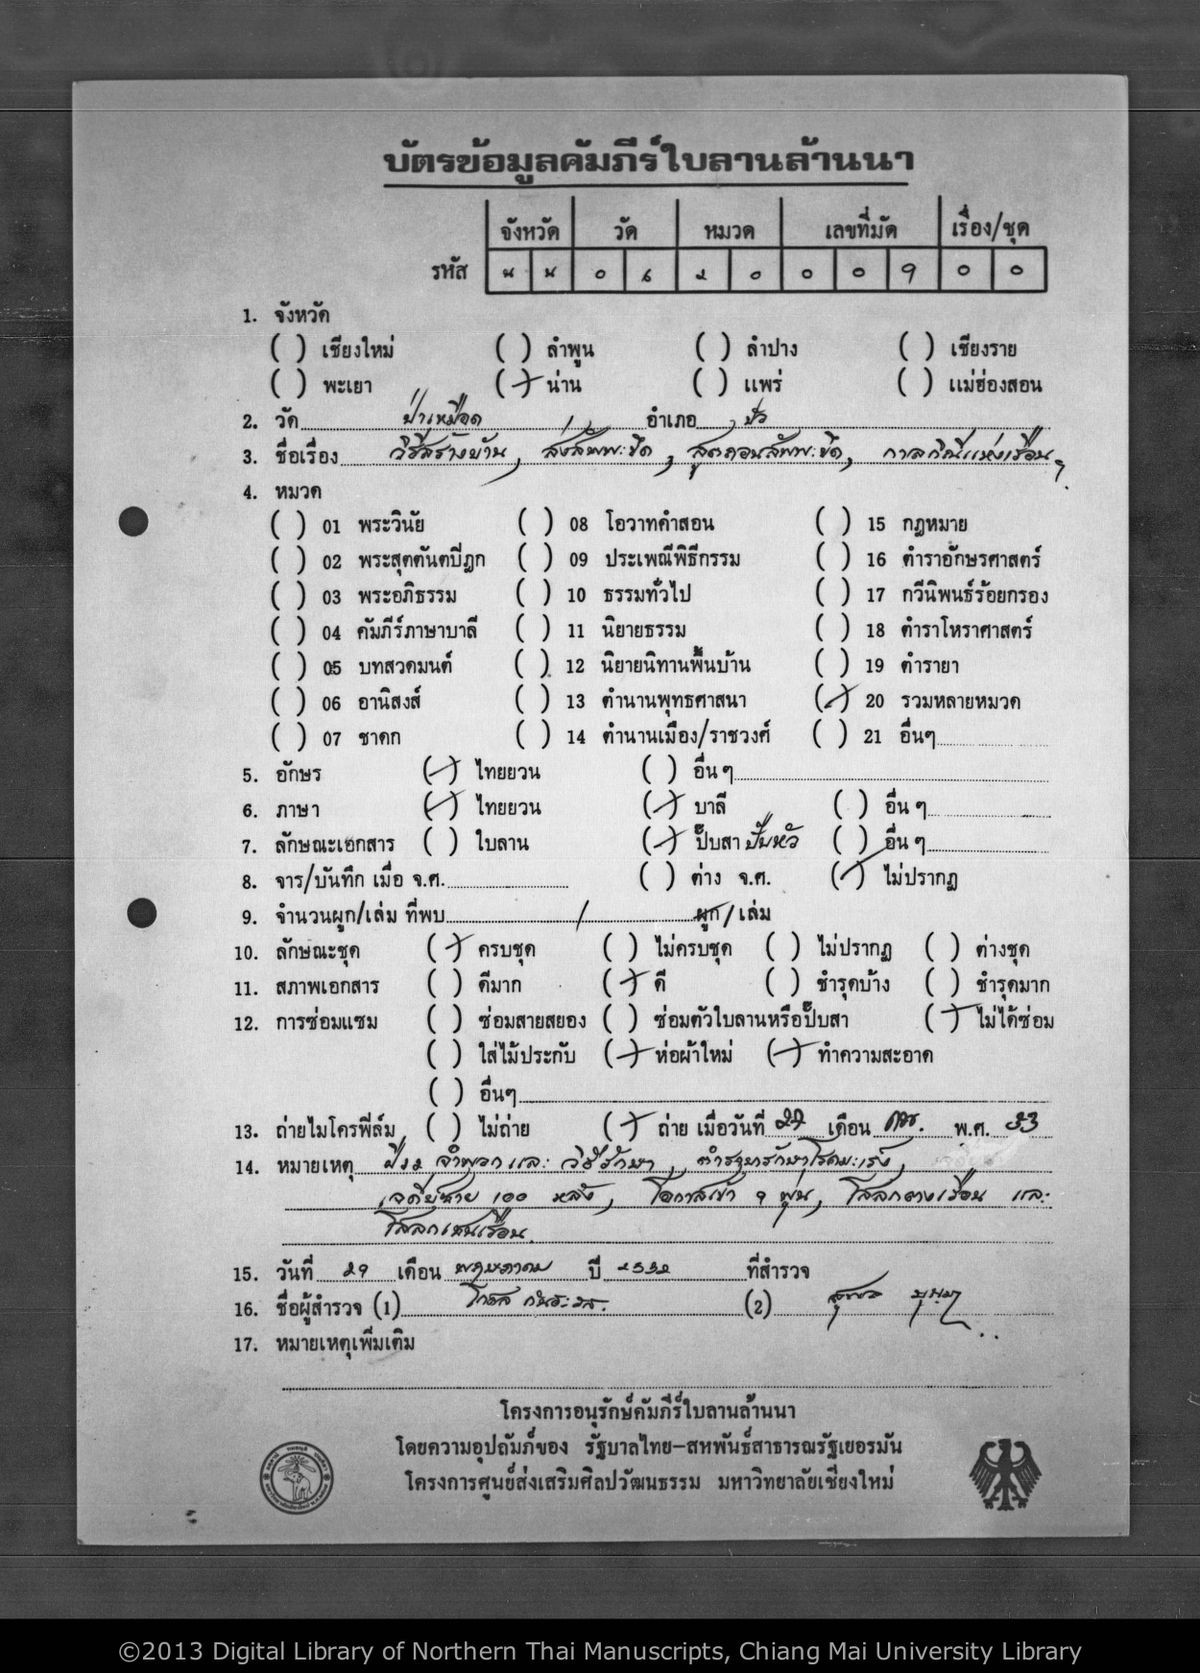 บัตรข้อมูลคัมภีร์ใบลานล้านนา
จังหวัด วัด หมวด เลขที่มัด เรื่อง/ชุด
รหัส น น ๐ ๘ ๒ ๐ ๐ ๐ ๑ ๐ ๐
1. จังหวัด
( ) เชียงใหม่ ( ) ลำพูน ( ) ลำปาง ( ) เชียงราย
( ) พะเยา (✓) น่าน ( ) แพร่ ( ) แม่ฮ่องสอน
2. วัด ป่าเหมือด อำเภอ ปัว
3. ชื่อเรื่อง วิธีสร้างบ้าน, สังสัพพะขึด, สูตถอนสัพพะขึด, กาลกิณีแห่งเรือน,
4. หมวด
( ) 01 พระวินัย ( ) 08 โอวาทคำสอน ( ) 15 กฎหมาย
( ) 02 พระสุตตันตปิฎก ( ) 09 ประเพณีพิธีกรรม ( ) 16 ตำราอักษรศาสตร์
( ) 03 พระอภิธรรม ( ) 10 ธรรมทั่วไป ( ) 17 กวีนิพนธ์ร้อยกรอง
( ) 04 คัมภีร์ภาษาบาลี ( ) 11 นิยายธรรม ( ) 18 ตำราโหราศาสตร์
( ) 05 บทสวดมนต์ ( ) 12 นิยายนิทานพื้นบ้าน ( ) 19 ตำรายา
( ) 06 อานิสงส์ ( ) 13 ตำนานพุทธศาสนา (✓) 20 รวมหลายหมวด
( ) 07 ชาดก ( ) 14 ตำนานเมือง/ราชวงศ์ ( ) 21 อื่นๆ
5. อักษร (✓) ไทยยวน ( ) อื่นๆ
6. ภาษา (✓) ไทยยวน (✓) บาลี ( ) อื่นๆ
7. ลักษณะเอกสาร ( ) ใบลาน (✓) ปั๊บสา ปั๊บหัว ( ) อื่นๆ
8. จาร/บันทึก เมื่อ จ.ศ. ( ) ต่าง จ.ศ. (✓) ไม่ปรากฏ
9. จำนวนผูก/เล่ม ที่พบ / ผูก/เล่ม
10. ลักษณะชุด (✓) ครบชุด ( ) ไม่ครบชุด ( ) ไม่ปรากฏ ( ) ต่างชุด
11. สภาพเอกสาร ( ) ดีมาก (✓) ดี ( ) ชำรุดบ้าง ( ) ชำรุดมาก
12. การซ่อมแซม ( ) ซ่อมสายสยอง ( ) ซ่อมตัวใบลานหรือปั๊บสา (✓) ไม่ได้ซ่อม
( ) ใส่ไม้ประกับ (✓) ห่อผ้าใหม่ (✓) ทำความสะอาด
( ) อื่นๆ
13. ถ่ายไมโครฟิล์ม ( ) ไม่ถ่าย (✓) ถ่าย เมื่อวันที่ ๒๗ เดือน พ.ศ. ๓๓
14. หมายเหตุ จำพวกและวิธีรักษา, ตำรายารักษาโรคมะเร็ง,
เจดีย์ทราย ๑๐๐ หลัง, โอกาสเข้า ๑ พุ่น, โสลกตางเรือน และ
โสลกเสนเรือน
15. วันที่ ๒๑ เดือน พฤษภาคม ปี ๒๕๓๒ ที่สำรวจ
16. ชื่อผู้สำรวจ (1) (2)
17. หมายเหตุเพิ่มเติม
โครงการอนุรักษ์คัมภีร์ใบลานล้านนา
โดยความอุปถัมภ์ของ รัฐบาลไทย-สหพันธ์สาธารณรัฐเยอรมัน
โครงการศูนย์ส่งเสริมศิลปวัฒนธรรม มหาวิทยาลัยเชียงใหม่
©2013 Digital Library of Northern Thai Manuscripts, Chiang Mai University Library